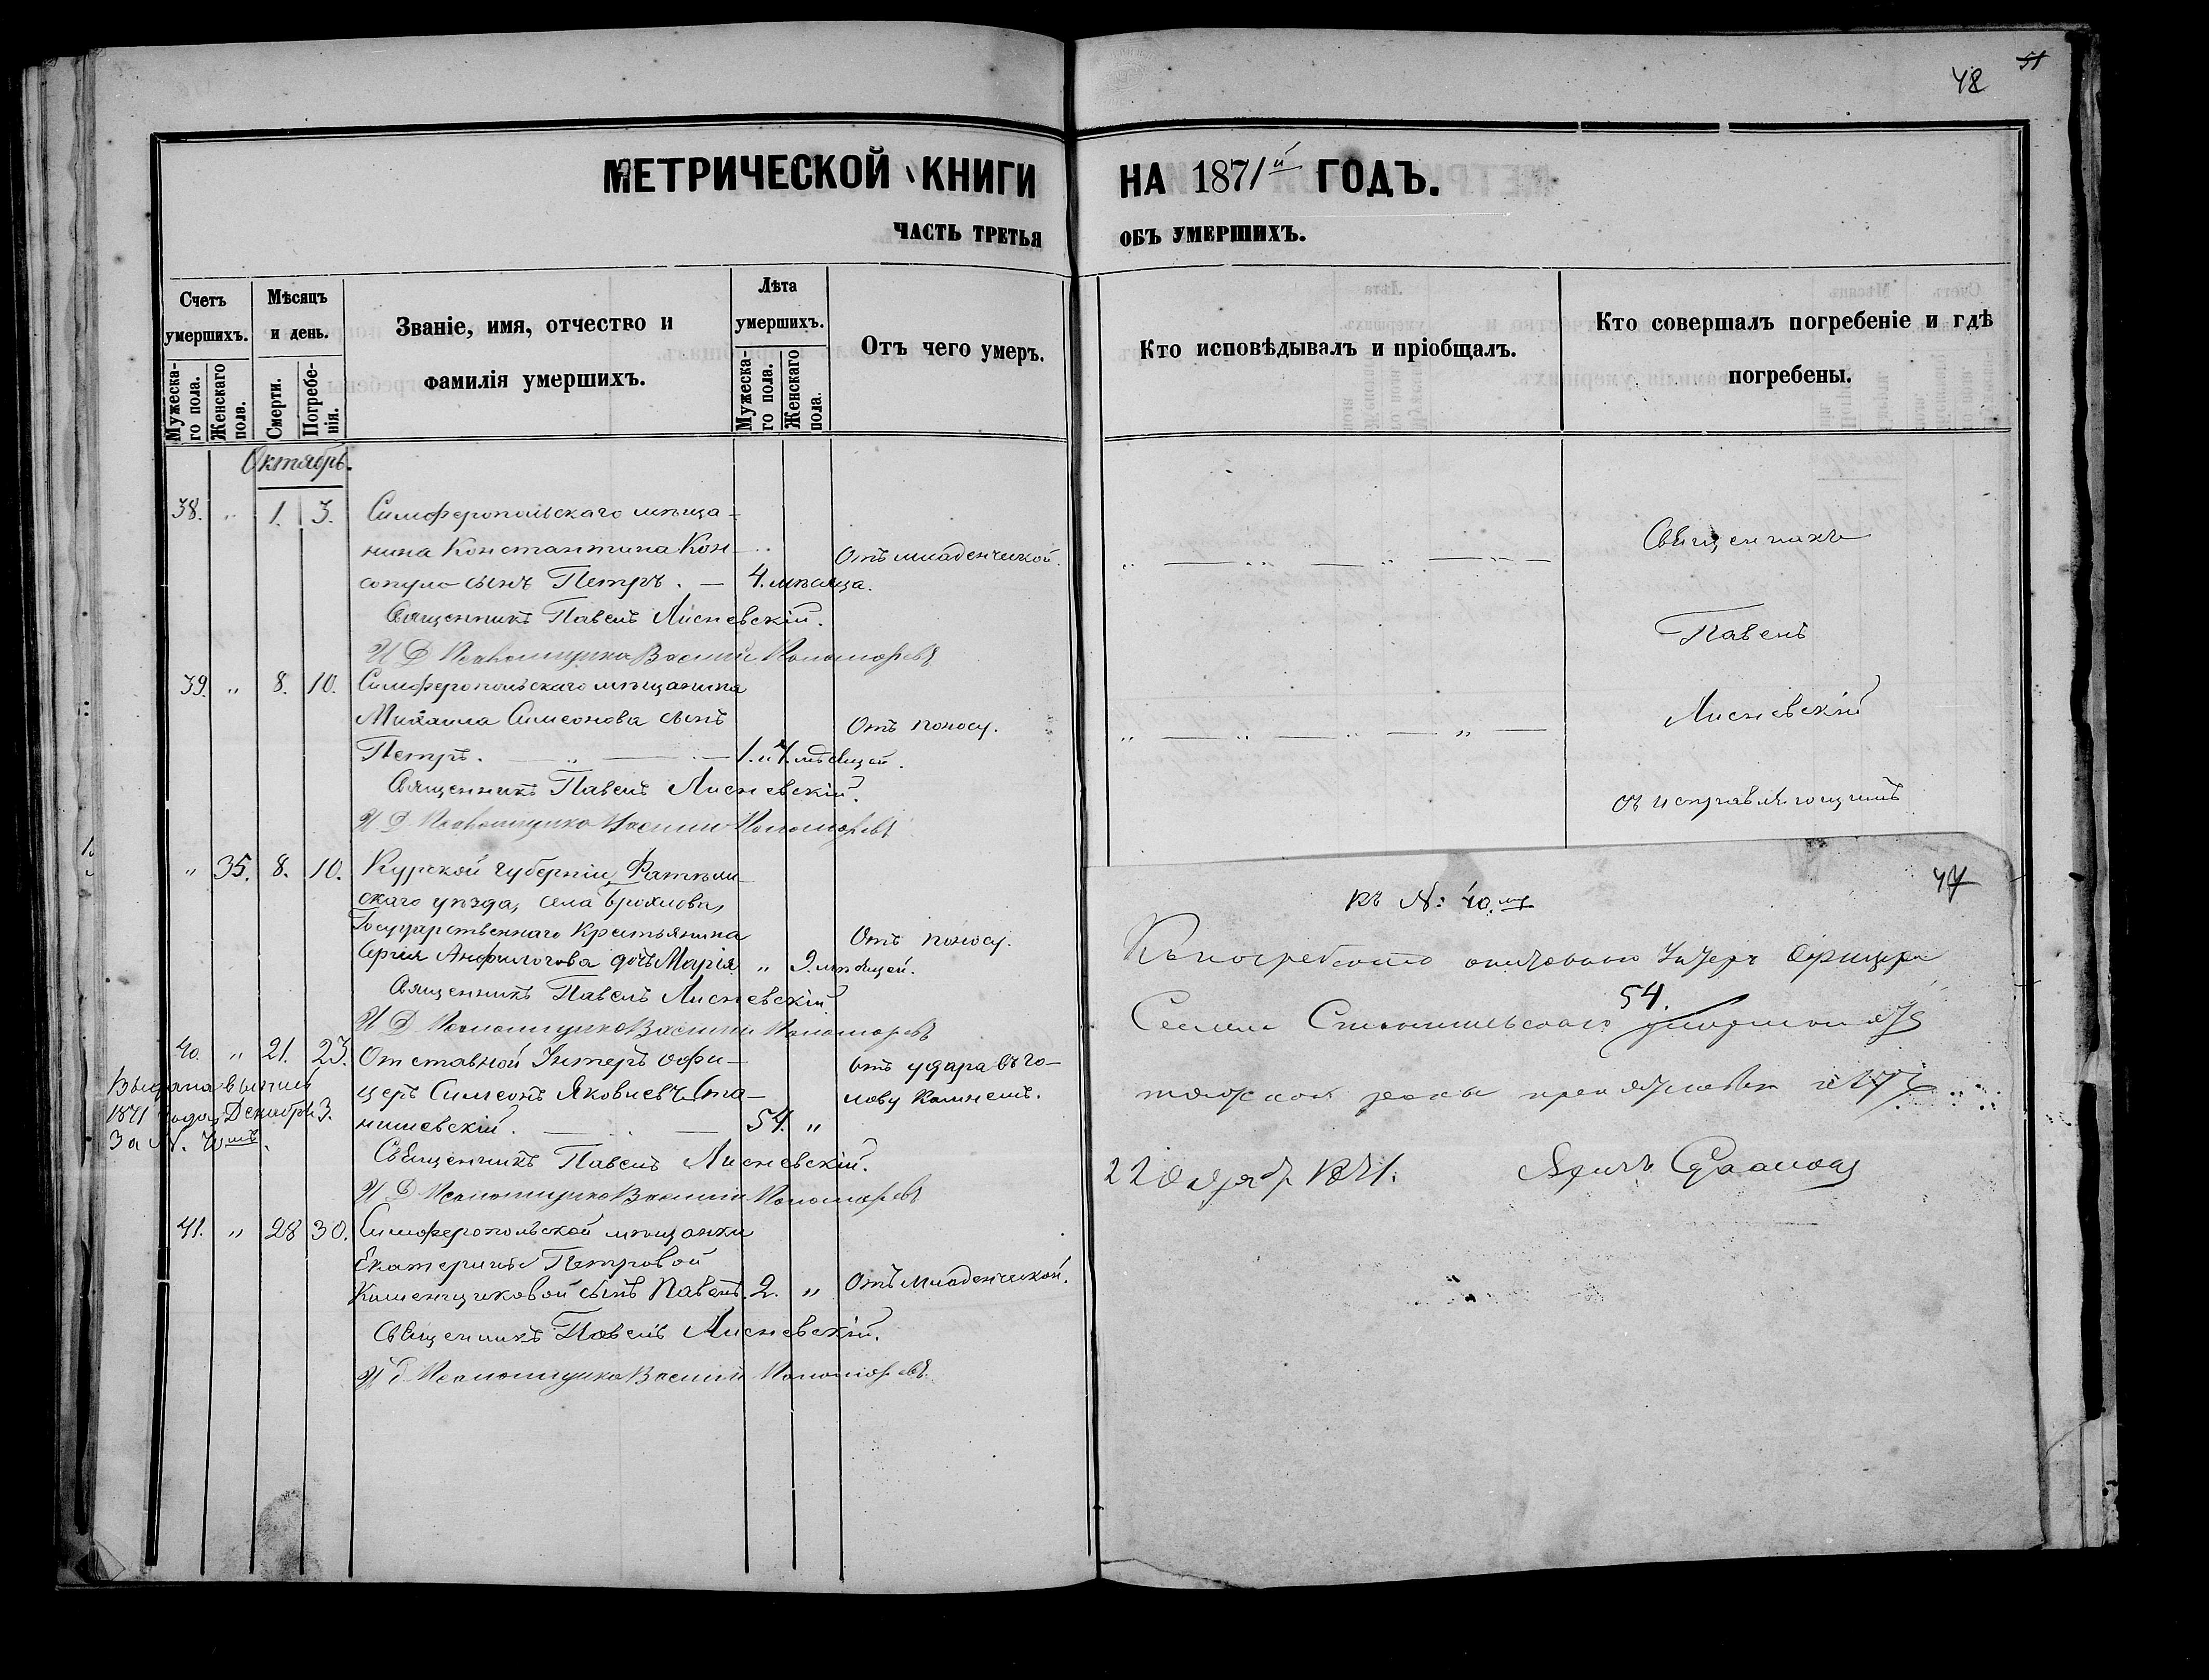 48 51
МЕТРИЧЕСКОЙ КНИГИ НА 1871й ГОДЪ.
ЧАСТЬ ТРЕТЬЯ ОБЪ УМЕРШИХЪ.
Счетъ умершихъ.
Мужеска-го пола.
Женскаго пола.
Мѣсяцъ и день.
Смерти.
Погребе-нія.
Званіе, имя, отчество и фамилія умершихъ.
Лѣта умершихъ.
Мужеска-го пола.
Женскаго пола.
Отъ чего умеръ.
Кто исповѣдывалъ и пріобщалъ.
Кто совершалъ погребеніе и гдѣ погребены.
Октябрь.
38. " 1. 3. Симферопольскаго мѣща-
нина Константина Кон- Отъ младенческой.
сопуло сынъ Петръ. — 4. мѣсяца.
Священникъ Павелъ Лисневскій.
И Д Псаломщика Василий Пономаревъ
39. " 8. 10. Симферопольскаго мѣщанина
Михаила Симеонова сынъ Отъ поносу.
Петръ. 1. и 4. мѣсяцей.
Священникъ Павелъ Лисневскій.
И Д Псаломщика Василий Пономаревъ
" 35. 8. 10. Курской губерніи, Фатѣжи-
скаго уѣзда, села
Государственнаго Крестьянина Отъ поносу.
Сергія Анфилогова дочь Марія. " 9. мѣсяцей.
Священникъ Павелъ Лисневскій
И Д Псаломщика Василий Пономаревъ
40. " 21. 23. Отставной Унтеръ офи- Отъ удара въ го-
церъ Симеонъ Яковлевъ Ста- лову камнемъ.
нишевскій. 54. "
Священникъ Павелъ Лисневскій.
И Д Псаломщика Василий Пономаревъ
Выдана выпись
1871 года, Декабря 3.
За №. 40мъ.
41. " 28 30. Симферопольской мѣщанки
Екатерины Петровой
Каменщиковой сынъ Павелъ. 2. " Отъ младенческой.
Священникъ Павелъ Лисневскій.
И д Псаломщика Василий Пономаревъ
Священникъ
Павелъ
Лисневскій
съ исправляющимъ
47
къ №: 40.му
Къ погребенію Унтеръ Офицера
54.
Семена Станишевскаго
препятствія нѣтъ
22 Октяб. 1871.